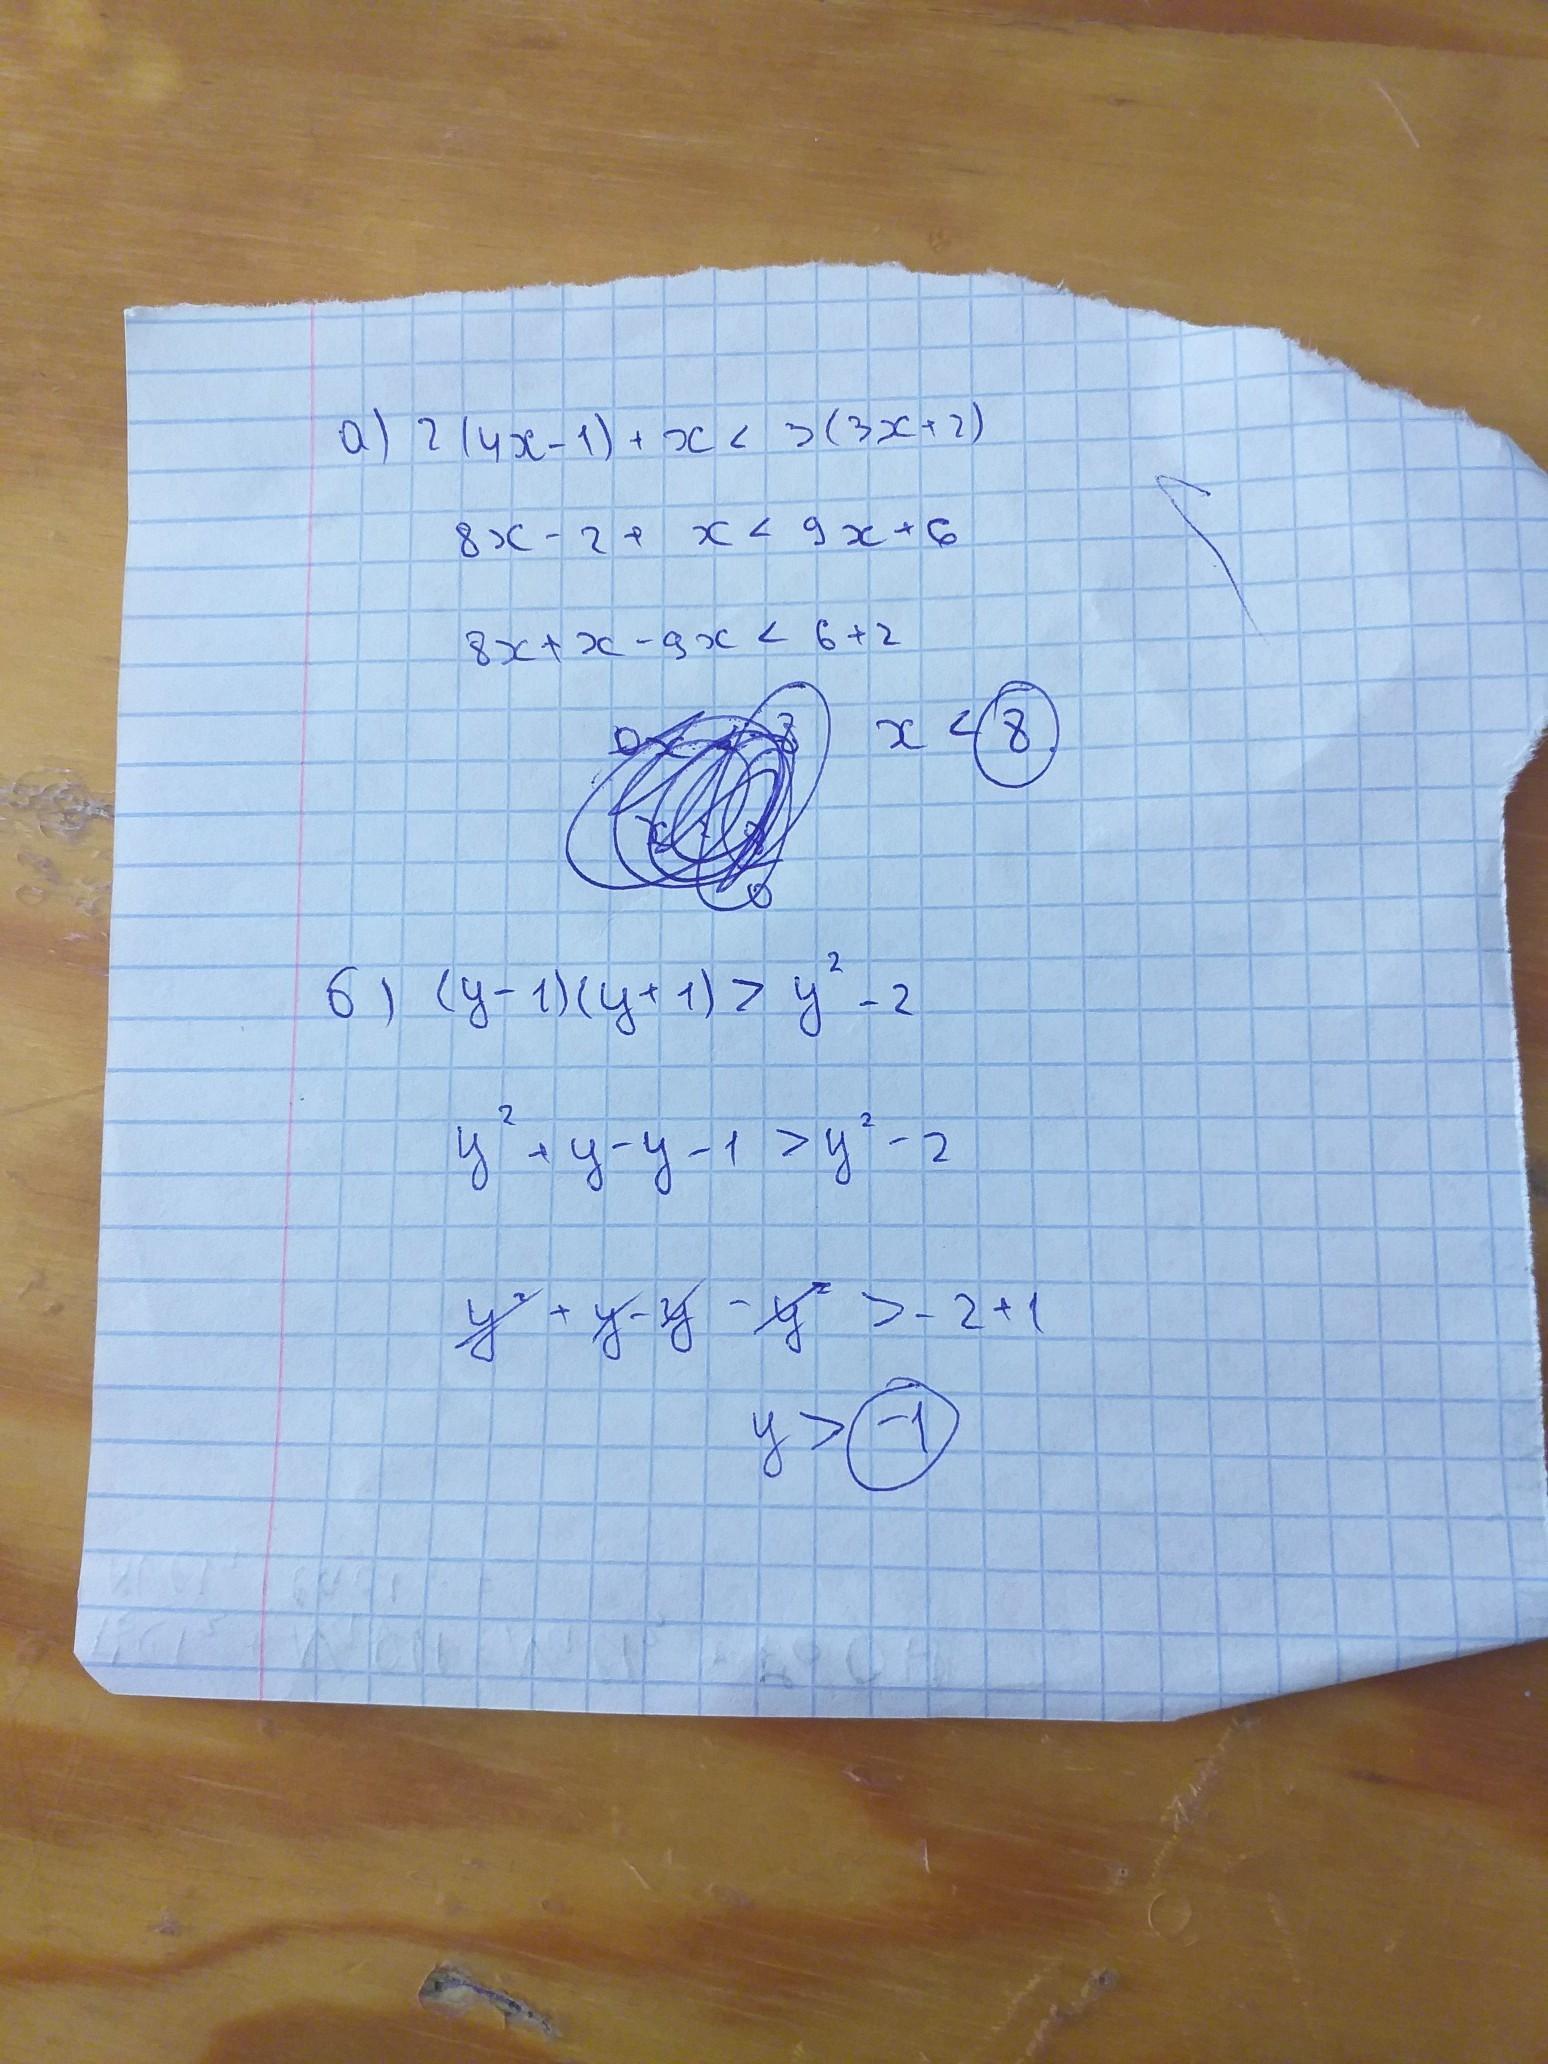 а) 2(4x-1)+x < 3(3x+2)
8x-2+ x < 9x+6
8x+x-9x < 6+2
x < 8
б) (y-1)(y+1) > y²-2
y²+y-y-1 > y²-2
y²+y-y-y² > -2+1
y > -1